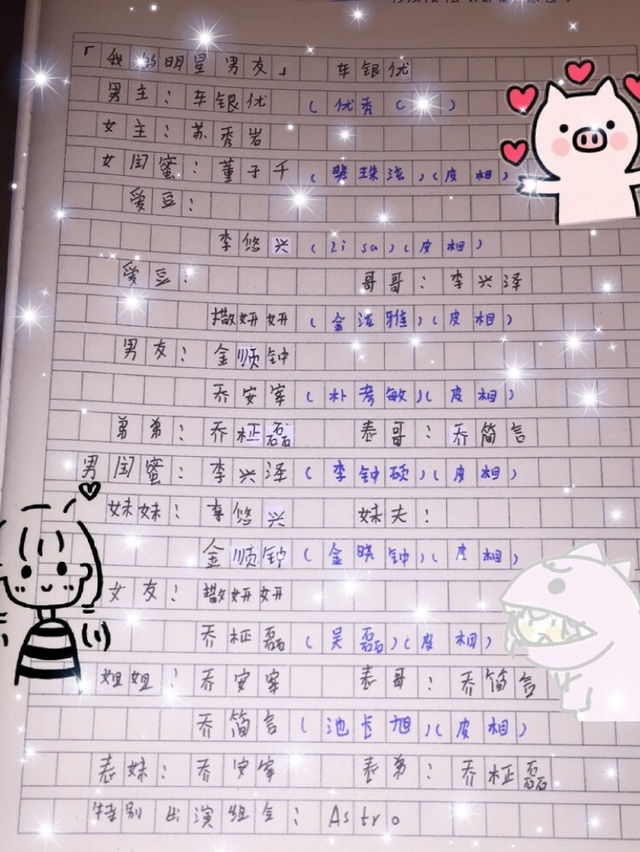 「我的明星男友」 车银优
男主：车银优（优秀（ ）
女主：苏秀岩
女闺蜜：董子千（裴珠泫）（皮相）
爱豆：
李悠兴（Lisa）（皮相）
爱豆： 哥哥：李兴泽
撒妍妍（金泫雅）（皮相）
男友：金顺钟
乔安宰（朴孝敏）（皮相）
弟弟：乔柾磊 表哥：乔简言
男闺蜜：李兴泽（李钟硕）（皮相）
妹妹：李悠兴 妹夫：
金顺钟（金晓钟）（皮相）
女友：撒妍妍
乔柾磊（吴磊）（皮相）
姐姐：乔安宰 表哥：乔简言
乔简言（池长旭）（皮相）
表妹：乔安宰 表弟：乔柾磊
特别出演组合：Astro